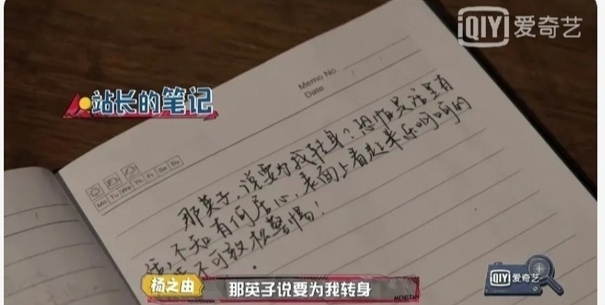 iQIY 爱奇艺
站长的笔记
Memo No.
Date
Mo Tu We Th Fr Sa Su
那英子,说要为我转身?恐怕是注定有
诈,不知有何居心,表面上看起来乐呵呵的
不可放松警惕!
杨之由
那英子说要为我转身
iQIY 爱奇艺